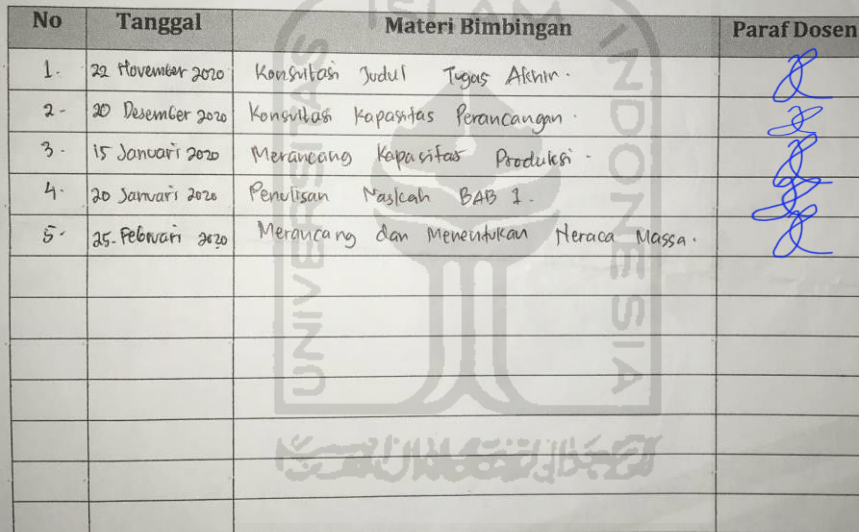 ISLAM
UNIVERSITAS
INDONESIA
No Tanggal Materi Bimbingan Paraf Dosen
1. 22 November 2020 Konsultasi Judul Tugas Akhir.
2. 20 Desember 2020 Konsultasi Kapasitas Perancangan.
3. 15 Januari 2020 Merancang Kapasitas Produksi.
4. 20 Januari 2020 Penulisan Naskah BAB 1.
5. 25. Februari 2020 Merancang dan Menentukan Neraca Massa.